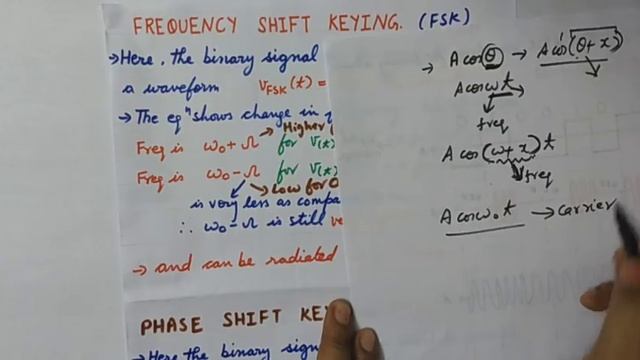 FREQUENCY SHIFT KEYING. (FSK)
→Here, the binary signal
a waveform VFSK(t) =
→ The eqⁿ shows change in
Freq is ω₀+Ω → Higher for V(t)
Freq is ω₀-Ω for V(t)
→ Low for 0
is very less as compa
∴ ω₀-Ω is still ve
→ and can be radiated
PHASE SHIFT KE
→ Here the binary sign
→ A cosθ → A cos(θ+x)
A cosωt
freq
A cos(ω+x)t
freq
A cosω₀t → carrier